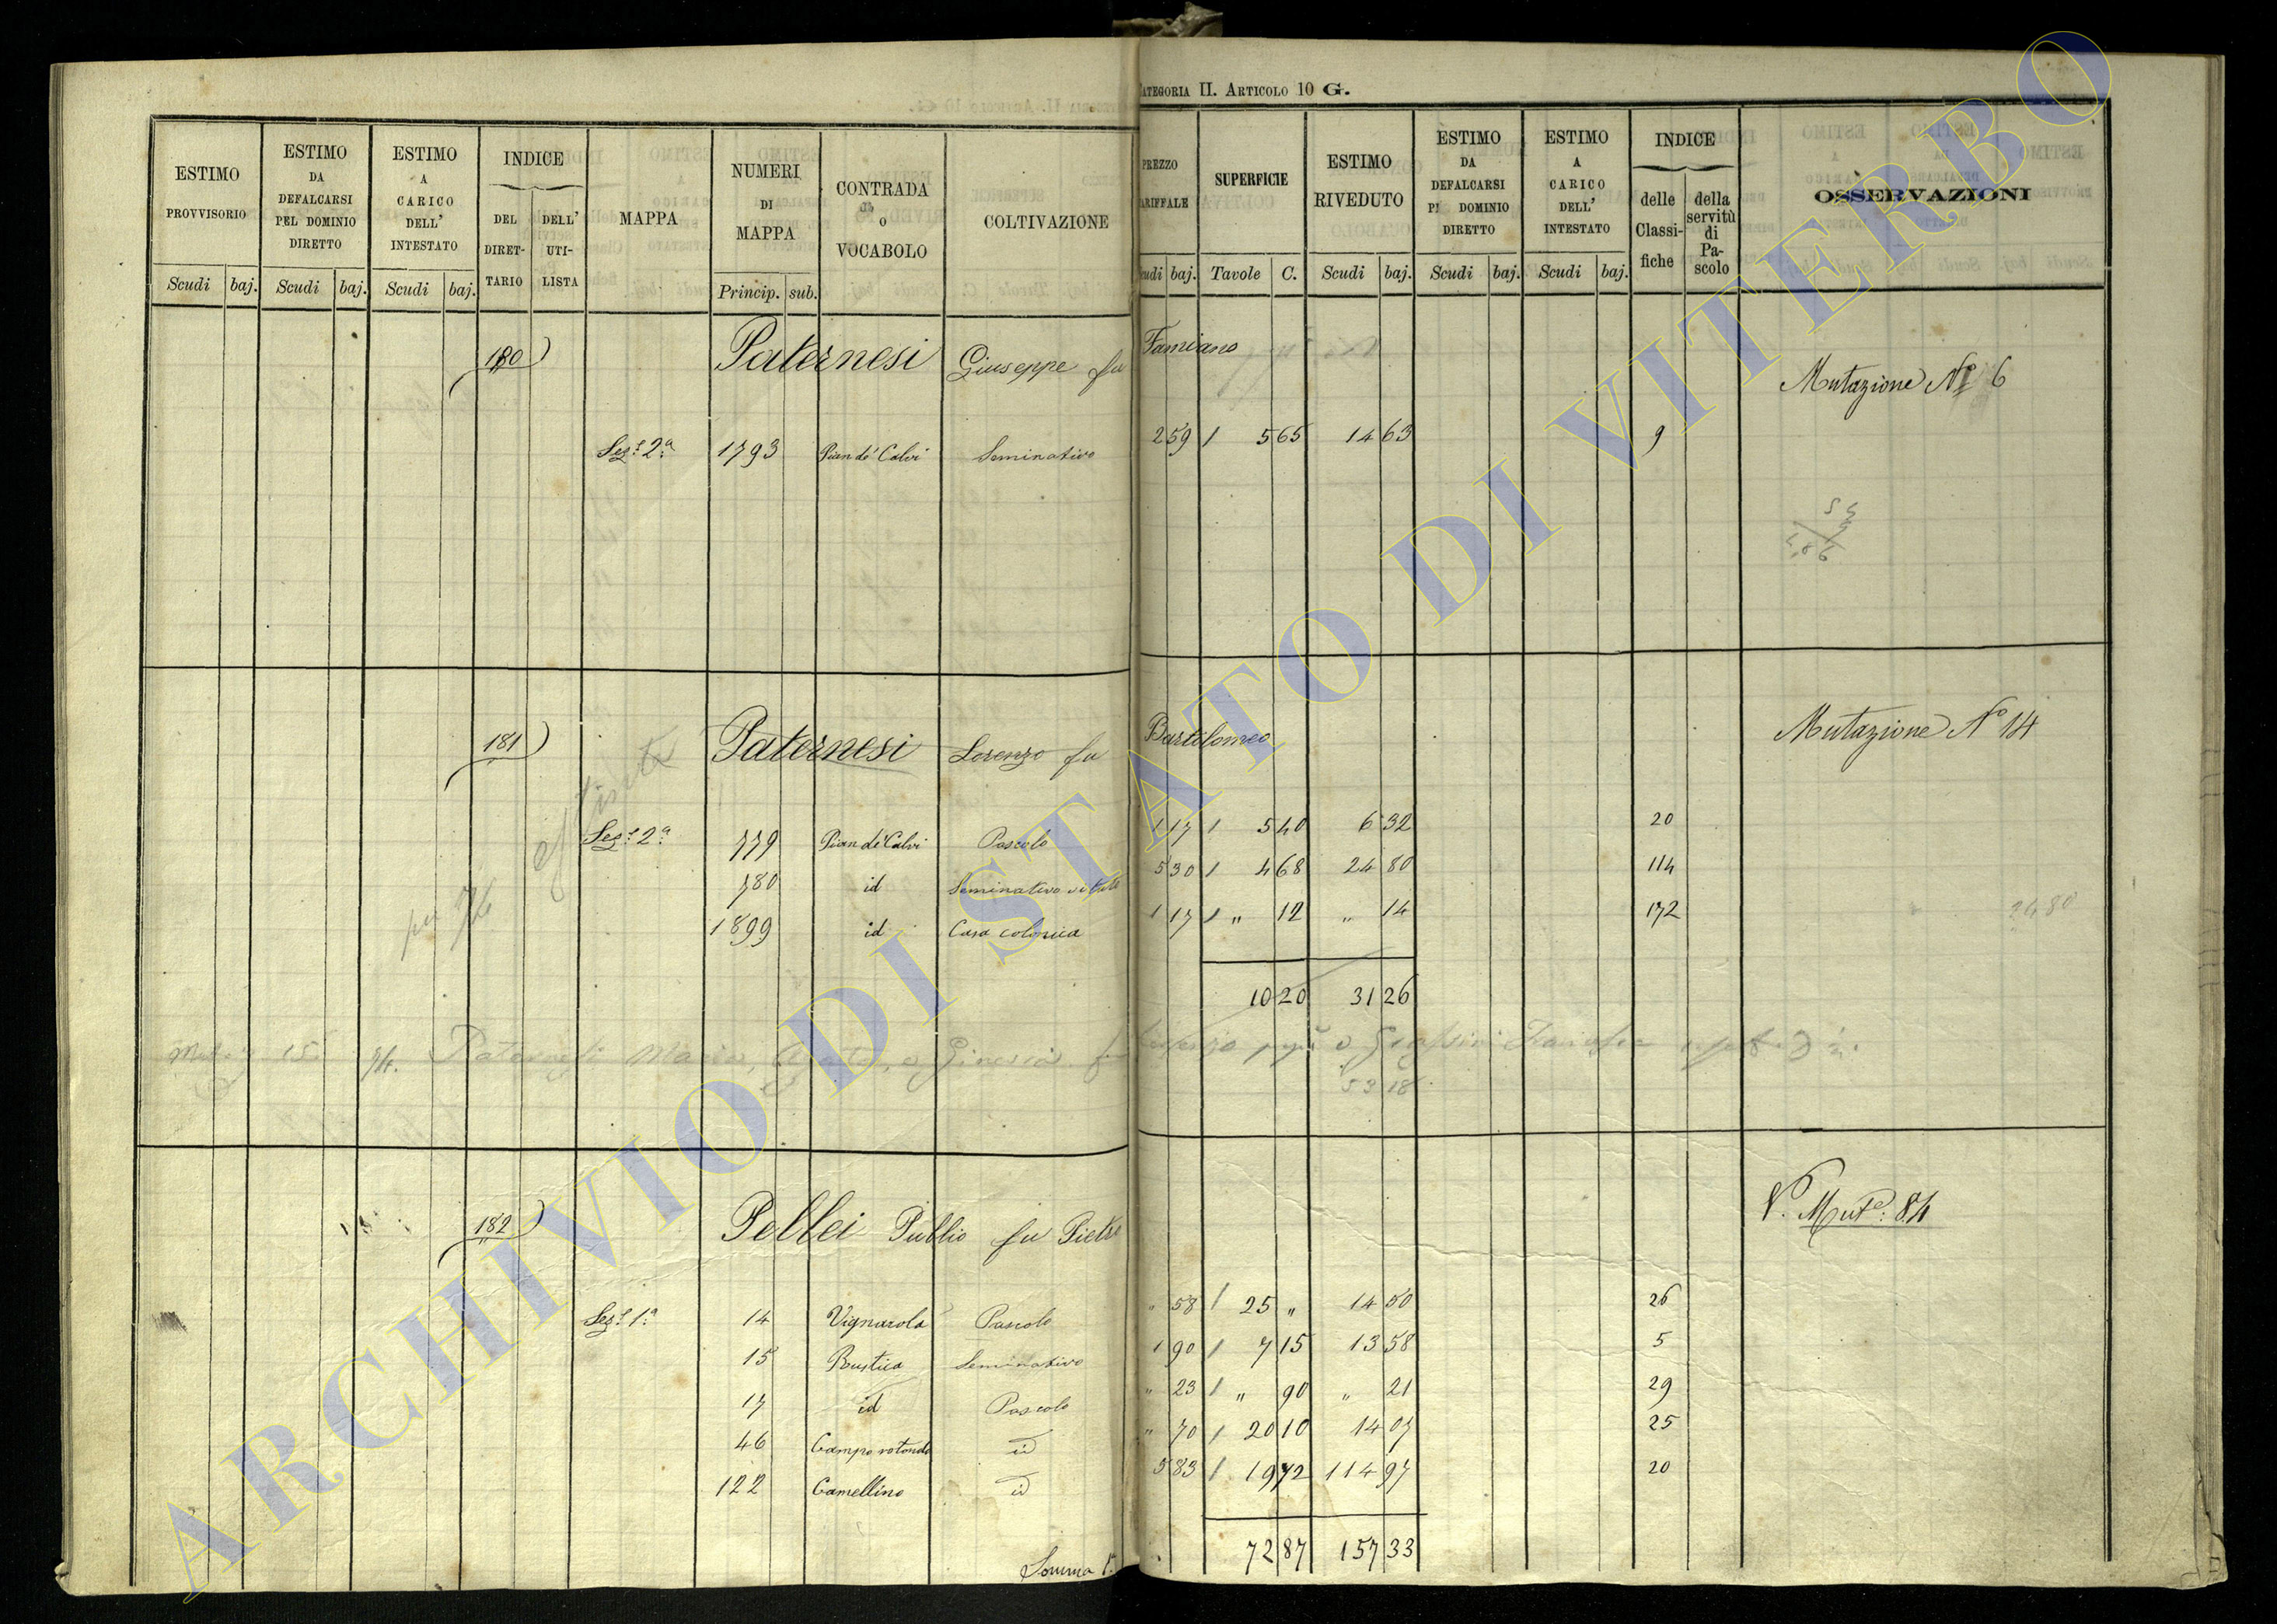 CATEGORIA II. ARTICOLO 10 G.
ESTIMO PROVVISORIO | ESTIMO DA DEFALCARSI PEL DOMINIO DIRETTO | ESTIMO A CARICO DELL' INTESTATO | INDICE DEL DIRETTARIO | DELL' UTILISTA | MAPPA | NUMERI DI MAPPA | CONTRADA o VOCABOLO | COLTIVAZIONE | PREZZO TARIFFALE | SUPERFICIE | ESTIMO RIVEDUTO | ESTIMO DA DEFALCARSI PEL DOMINIO DIRETTO | ESTIMO A CARICO DELL' INTESTATO | INDICE delle Classifiche | della servitù di Pascolo | OSSERVAZIONI
Scudi baj. | Scudi baj. | Scudi baj. | Princip. sub. | Scudi baj. | Tavole C. | Scudi baj. | Scudi baj. | Scudi baj.
180) Paternesi Giuseppe fu Famiano Mutazione N° 6
Sez.e 2a 1793 Pian de' Calvi Seminativo 2 59 1 5 65 14 63 9
181) Paternesi Lorenzo fu Bartolomeo Mutazione N° 14
Sez.e 2a 779 Pian de' Calvi Pascolo 1 17 1 5 40 6 32 20
780 id Seminativo vitato 5 30 1 4 68 24 80 114
1899 id Casa colonica 1 17 1 " 12 " 14 172
24 80
10 20 31 26
53 18
182) Pellei Publio fu Pietro V. Mut.e: 84
Sez.e 1a 14 Vignarola Pascolo " 58 1 25 " 14 50 26
15 Rustica Seminativo 1 90 1 7 15 13 58 5
17 id Pascolo " 23 1 " 90 " 21 29
46 Campo rotondo id " 70 1 20 10 14 07 25
122 Camellino id 5 83 1 19 72 114 97 20
Somma 72 87 157 33
ARCHIVIO DI STATO DI VITERBO